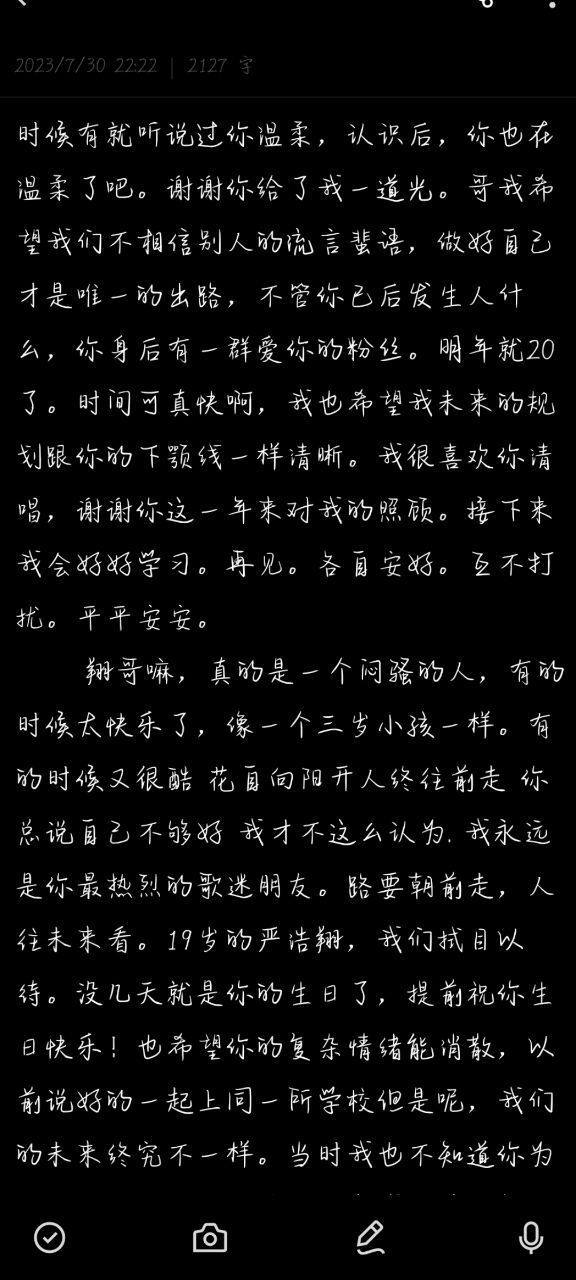 2023/7/30 22:22 | 2127 字
时候有就听说过你温柔，认识后，你也在
温柔了吧。谢谢你给了我一道光。哥我希
望我们不相信别人的流言蜚语，做好自己
才是唯一的出路，不管你已后发生人什
么，你身后有一群爱你的粉丝。明年就20
了。时间可真快啊，我也希望我未来的规
划跟你的下颚线一样清晰。我很喜欢你清
唱，谢谢你这一年来对我的照顾。接下来
我会好好学习。再见。各自安好。互不打
扰。平平安安。
翔哥嘛，真的是一个闷骚的人，有的
时候太快乐了，像一个三岁小孩一样。有
的时候又很酷 花自向阳开人终往前走 你
总说自己不够好 我才不这么认为. 我永远
是你最热烈的歌迷朋友。路要朝前走，人
往未来看。19岁的严浩翔，我们拭目以
待。没几天就是你的生日了，提前祝你生
日快乐！也希望你的复杂情绪能消散，以
前说好的一起上同一所学校但是呢，我们
的未来终究不一样。当时我也不知道你为